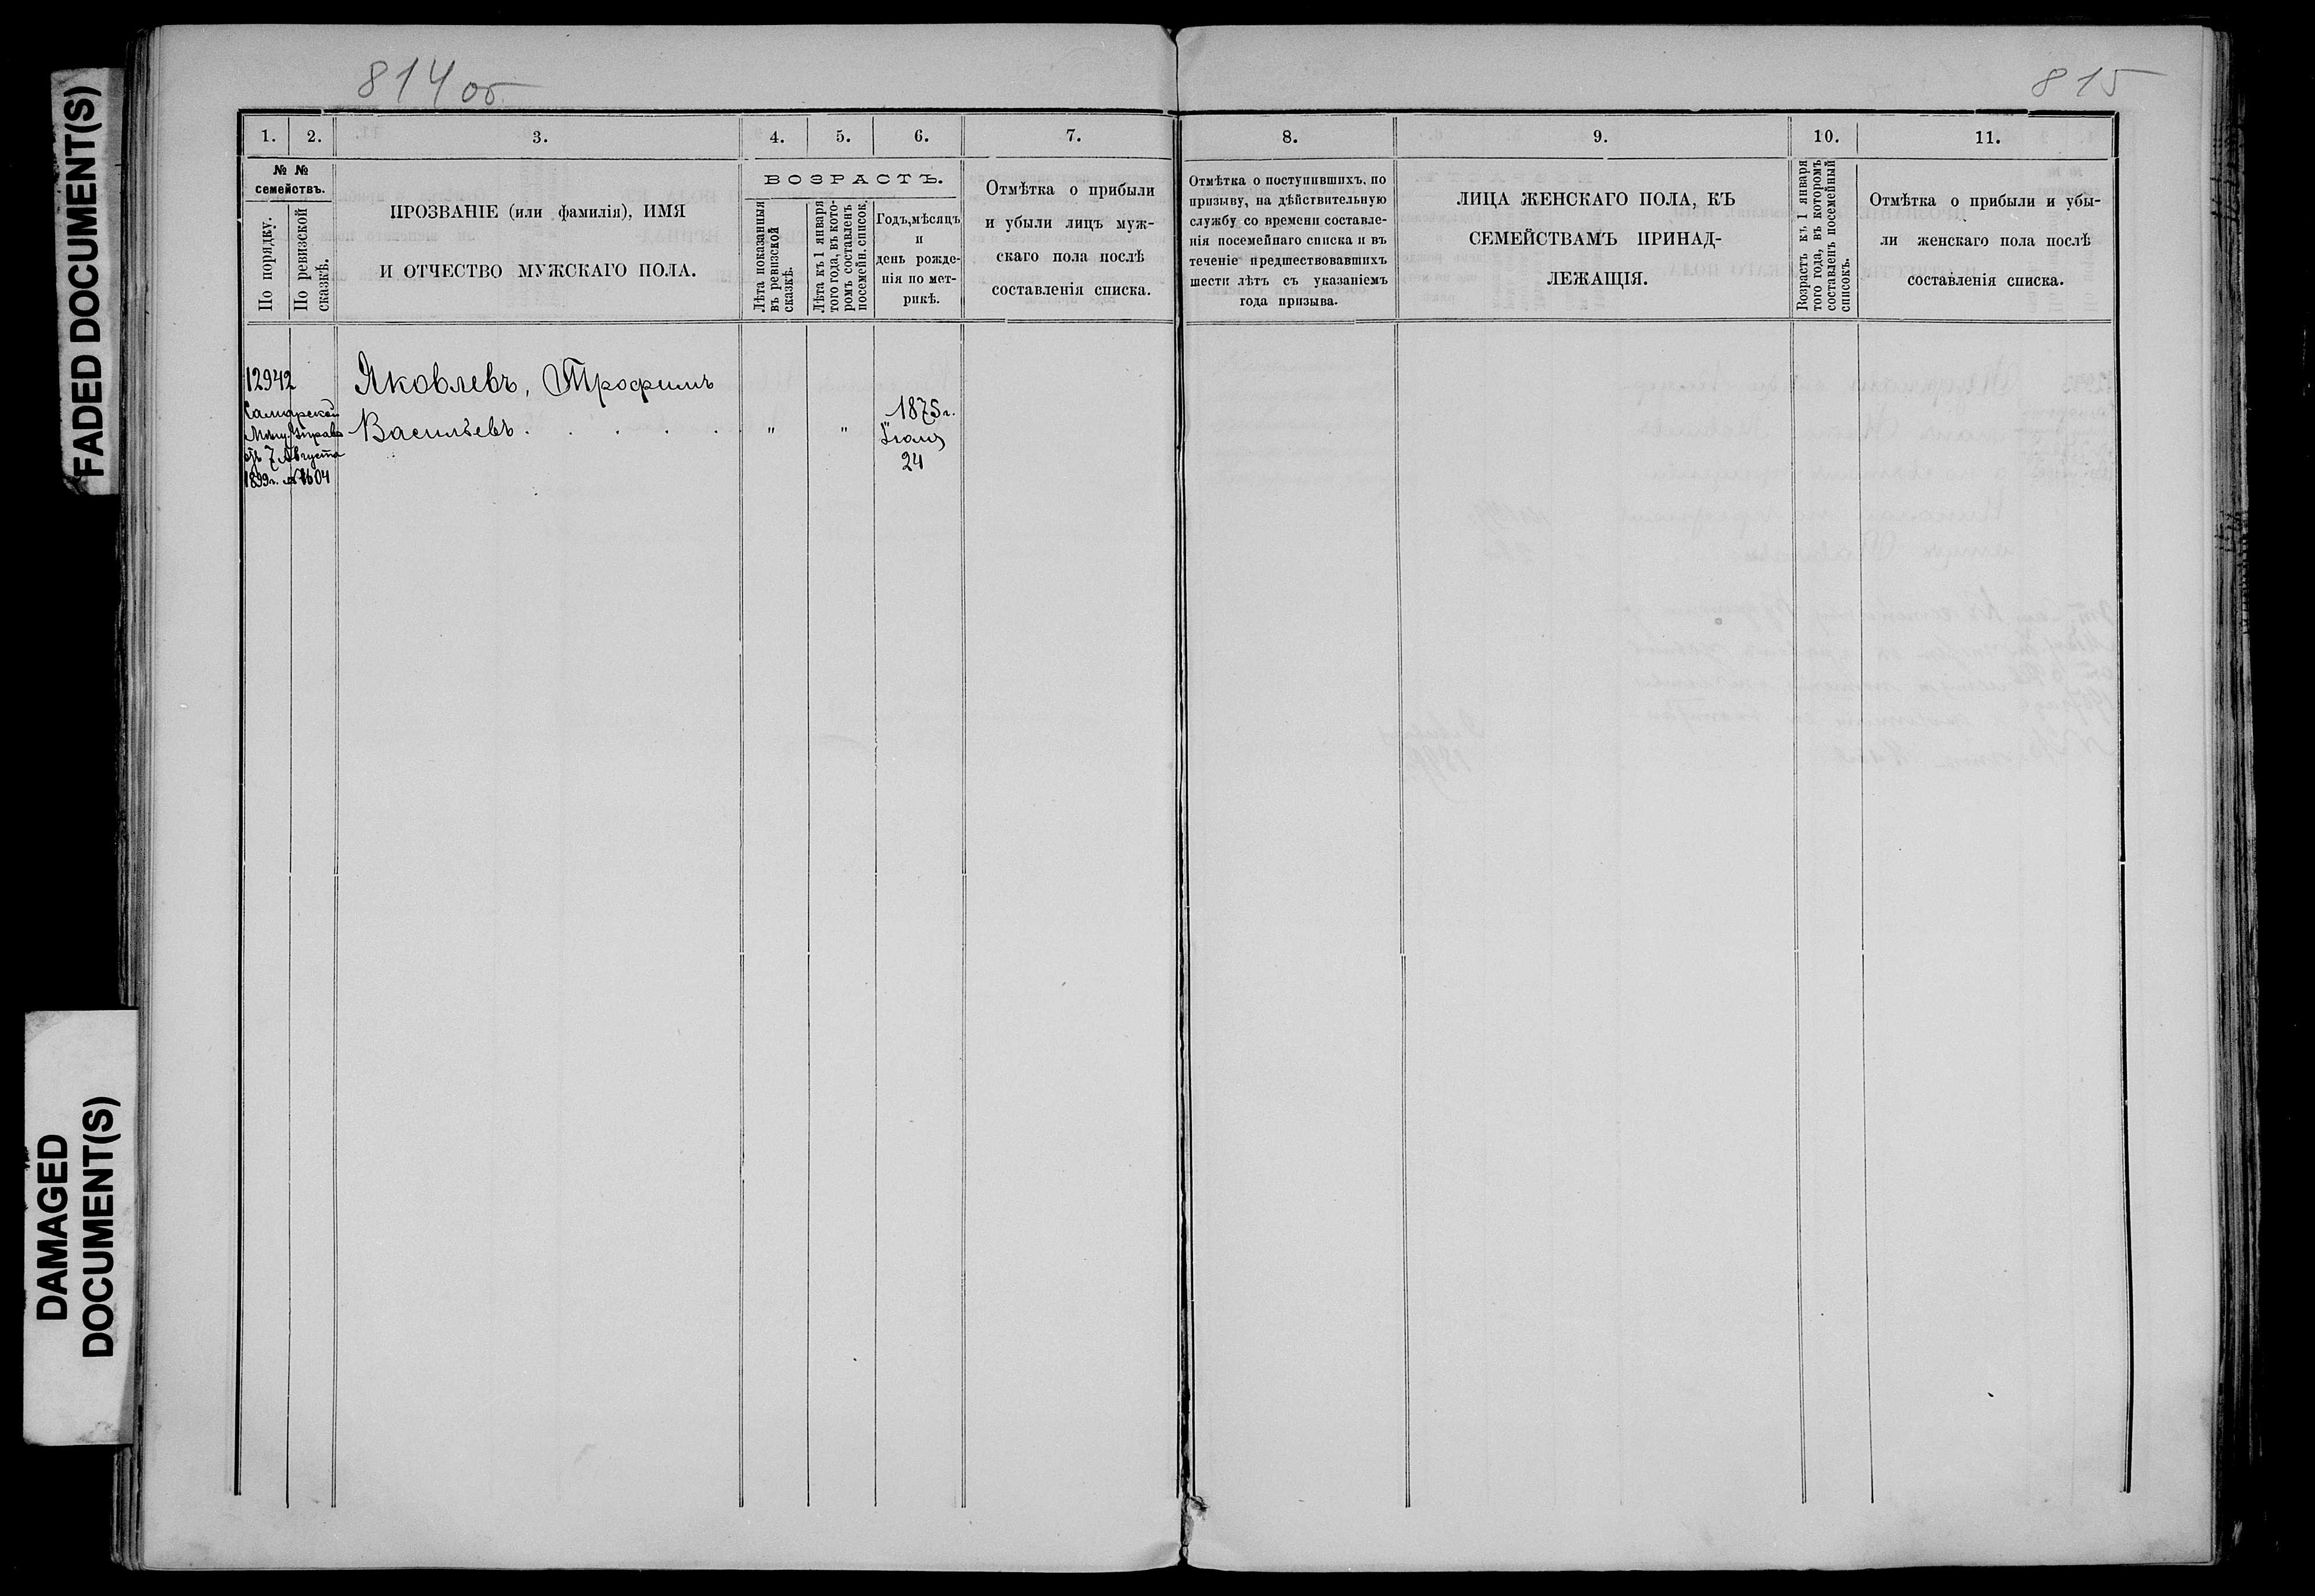 FADED DOCUMENT(S)
DAMAGED
DOCUMENT(S)
814 об
815
1. 2. 3. 4. 5. 6. 7. 8. 9. 10. 11.
№ №
семействъ.
По порядку.
По ревизской
сказкѣ.
ПРОЗВАНІЕ (или фамилія), ИМЯ
И ОТЧЕСТВО МУЖСКАГО ПОЛА.
ВОЗРАСТЪ.
Лѣта показанныя
въ ревизской
сказкѣ.
Лѣта къ 1 января
того года, въ кото-
ромъ составленъ
посемейн. список.
Годъ, мѣсяцъ
и
день рожде-
нія по мет-
рикѣ.
Отмѣтка о прибыли
и убыли лицъ муж-
скаго пола послѣ
составленія списка.
Отмѣтка о поступившихъ, по
призыву, на дѣйствительную
службу со времени составле-
нія посемейнаго списка и въ
теченіе предшествовавшихъ
шести лѣтъ съ указаніемъ
года призыва.
ЛИЦА ЖЕНСКАГО ПОЛА, КЪ
СЕМЕЙСТВАМЪ ПРИНАД-
ЛЕЖАЩІЯ.
Возрастъ къ 1 января
того года, въ которомъ
составленъ посемейный
списокъ.
Отмѣтка о прибыли и убы-
ли женскаго пола послѣ
составленія списка.
12942
Самарской
Мѣщ. Управы
отъ 7 Августа
1899 г. № 1604
Яковлевъ, Трофимъ
Васильевъ . . . . . " "
1875 г.
Іюля
24